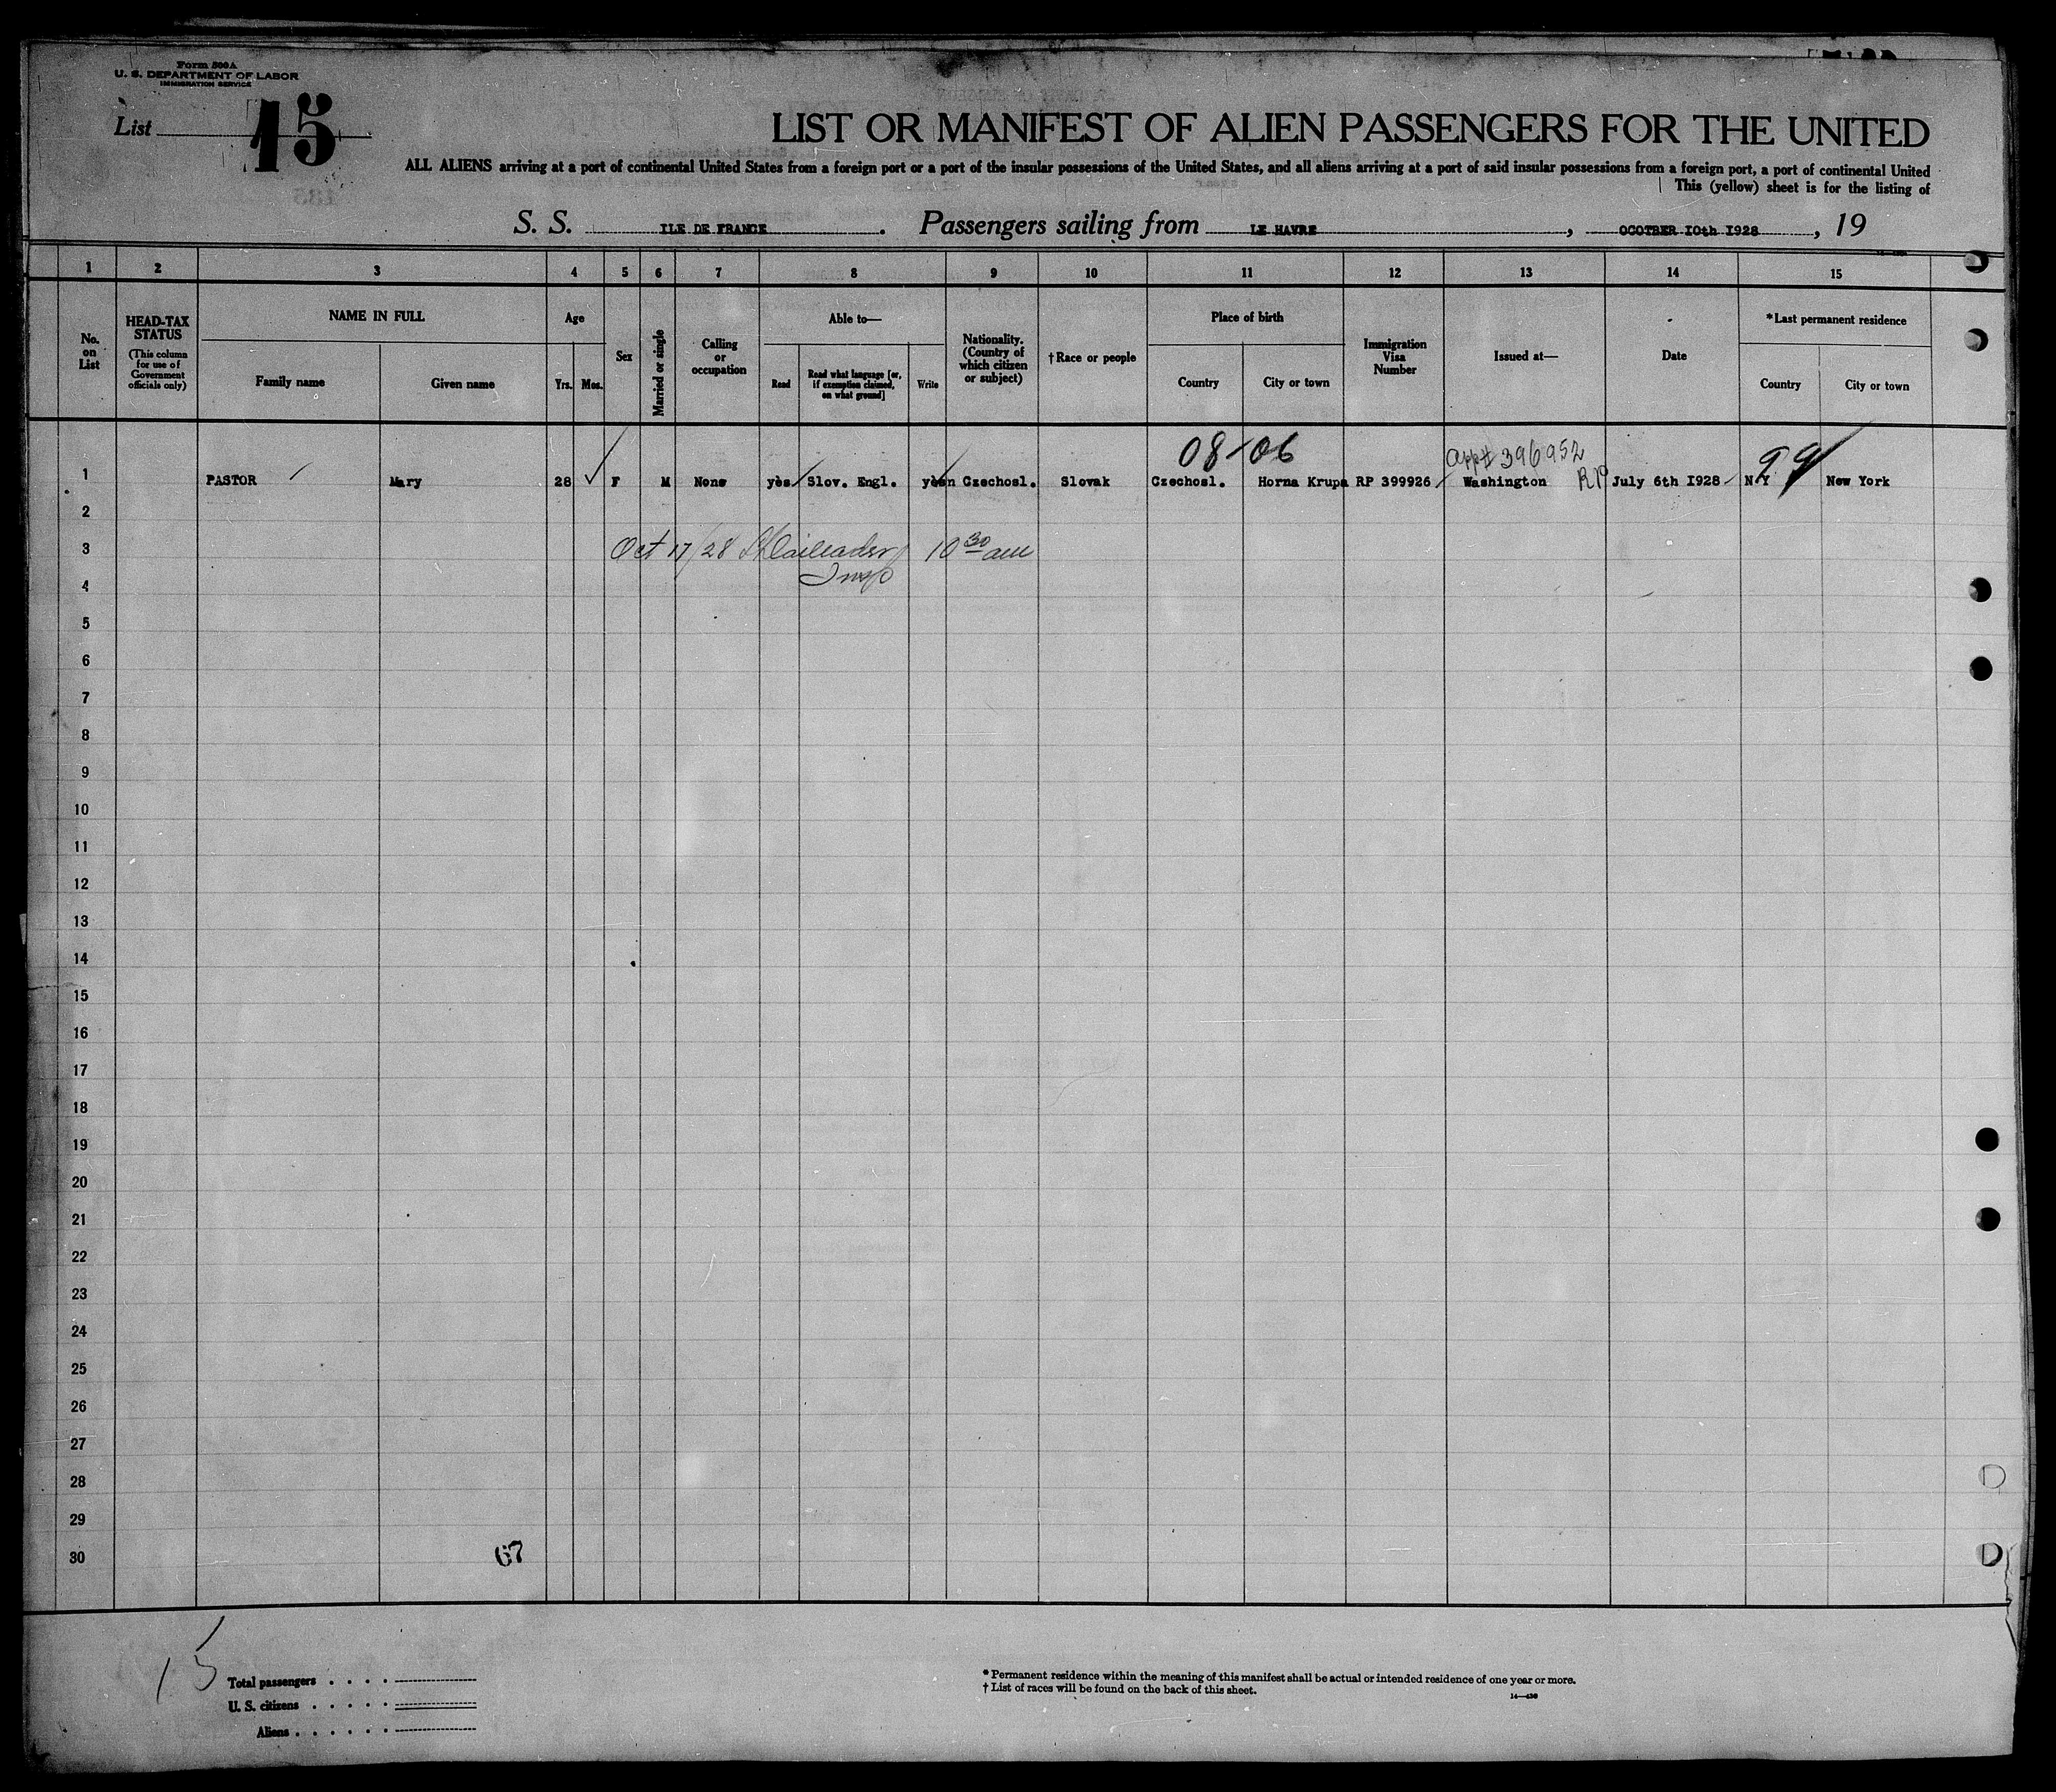 Form 500A
U. S. DEPARTMENT OF LABOR
IMMIGRATION SERVICE
List 15
LIST OR MANIFEST OF ALIEN PASSENGERS FOR THE UNITED
ALL ALIENS arriving at a port of continental United States from a foreign port or a port of the insular possessions of the United States, and all aliens arriving at a port of said insular possessions from a foreign port, a port of continental United
This (yellow) sheet is for the listing of
S. S. ILE DE FRANCE . Passengers sailing from LE HAVRE , OCOTBER IOth I928 , 19
1 2 3 4 5 6 7 8 9 10 11 12 13 14 15
No. on List
HEAD-TAX STATUS
(This column for use of Government officials only)
NAME IN FULL
Family name Given name
Age
Yrs. Mos.
Sex
Married or single
Calling or occupation
Able to—
Read
Read what language [or, if exemption claimed, on what ground]
Write
Nationality. (Country of which citizen or subject)
†Race or people
Place of birth
Country City or town
Immigration Visa Number
Issued at—
Date
*Last permanent residence
Country City or town
08-06 app# 396952 99
1 PASTOR Mary 28 F M None yes Slov. Engl. yes Czechosl. Slovak Czechosl. Horna Krupa RP 399926 Washington RP July 6th I928 NY New York
2
3 Oct 17/28 10 30 am
Insp
4
5
6
7
8
9
10
11
12
13
14
15
16
17
18
19
20
21
22
23
24
25
26
27
28
29
30
67
15
Total passengers
U. S. citizens
Aliens
* Permanent residence within the meaning of this manifest shall be actual or intended residence of one year or more.
† List of races will be found on the back of this sheet.